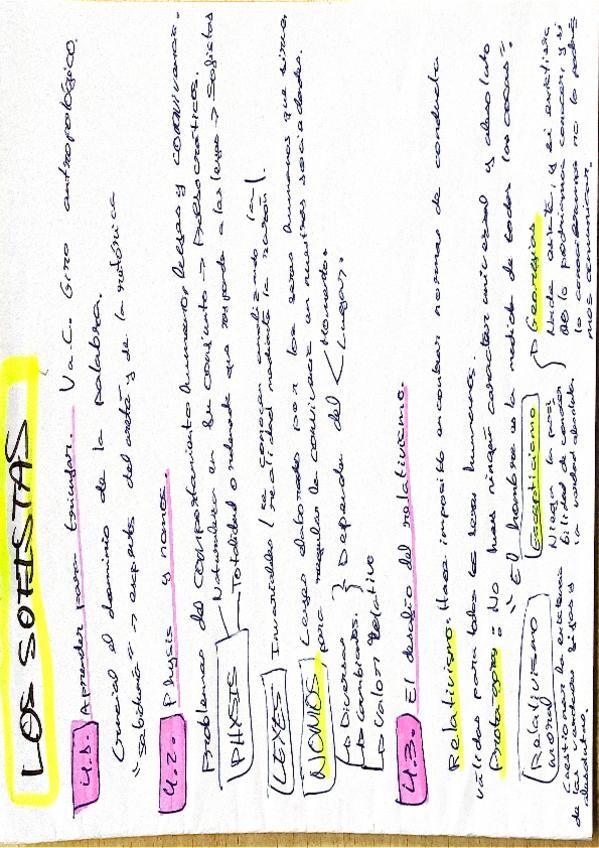 LOS SOFISTAS
4.1. Aprender para triunfar. V a.C. Giro antropológico.
Crucial el dominio de la palabra.
"Sabiduría" → experta del areté y de la retórica
4.2. Physis y nomos.
Problemas del comportamiento humano, leyes y convivencia.
PHYSIS Naturaleza en su conjunto → Presocráticos.
Totalidad ordenada que responde a las leyes → Sofistas
LEYES Invariables (se conocen analizando la
realidad mediante la razón).
NOMOS Leyes elaboradas por los seres humanos que sirve
para regular la convivencia en nuestras sociedades.
Diversas
cambiantes.
Valor Relativo
Depende del
Momento.
Lugar.
4.3. El desafío del relativismo.
Relativismo. Hace imposible encontrar normas de conducta
válidas para todos los seres humanos.
Protágoras: No hay ningún carácter universal y absoluto
"El hombre es la medida de todas las cosas".
Relativismo moral
Cuestionar la existencia
de las verdades fijas y
absolutas.
Escepticismo
Niega la posi
bilidad de conocer
la verdad absoluta
Georgias
Nada existe, y si existiese
no lo podríamos conocer, y si
lo conociéramos no lo podría
mos comunicar.